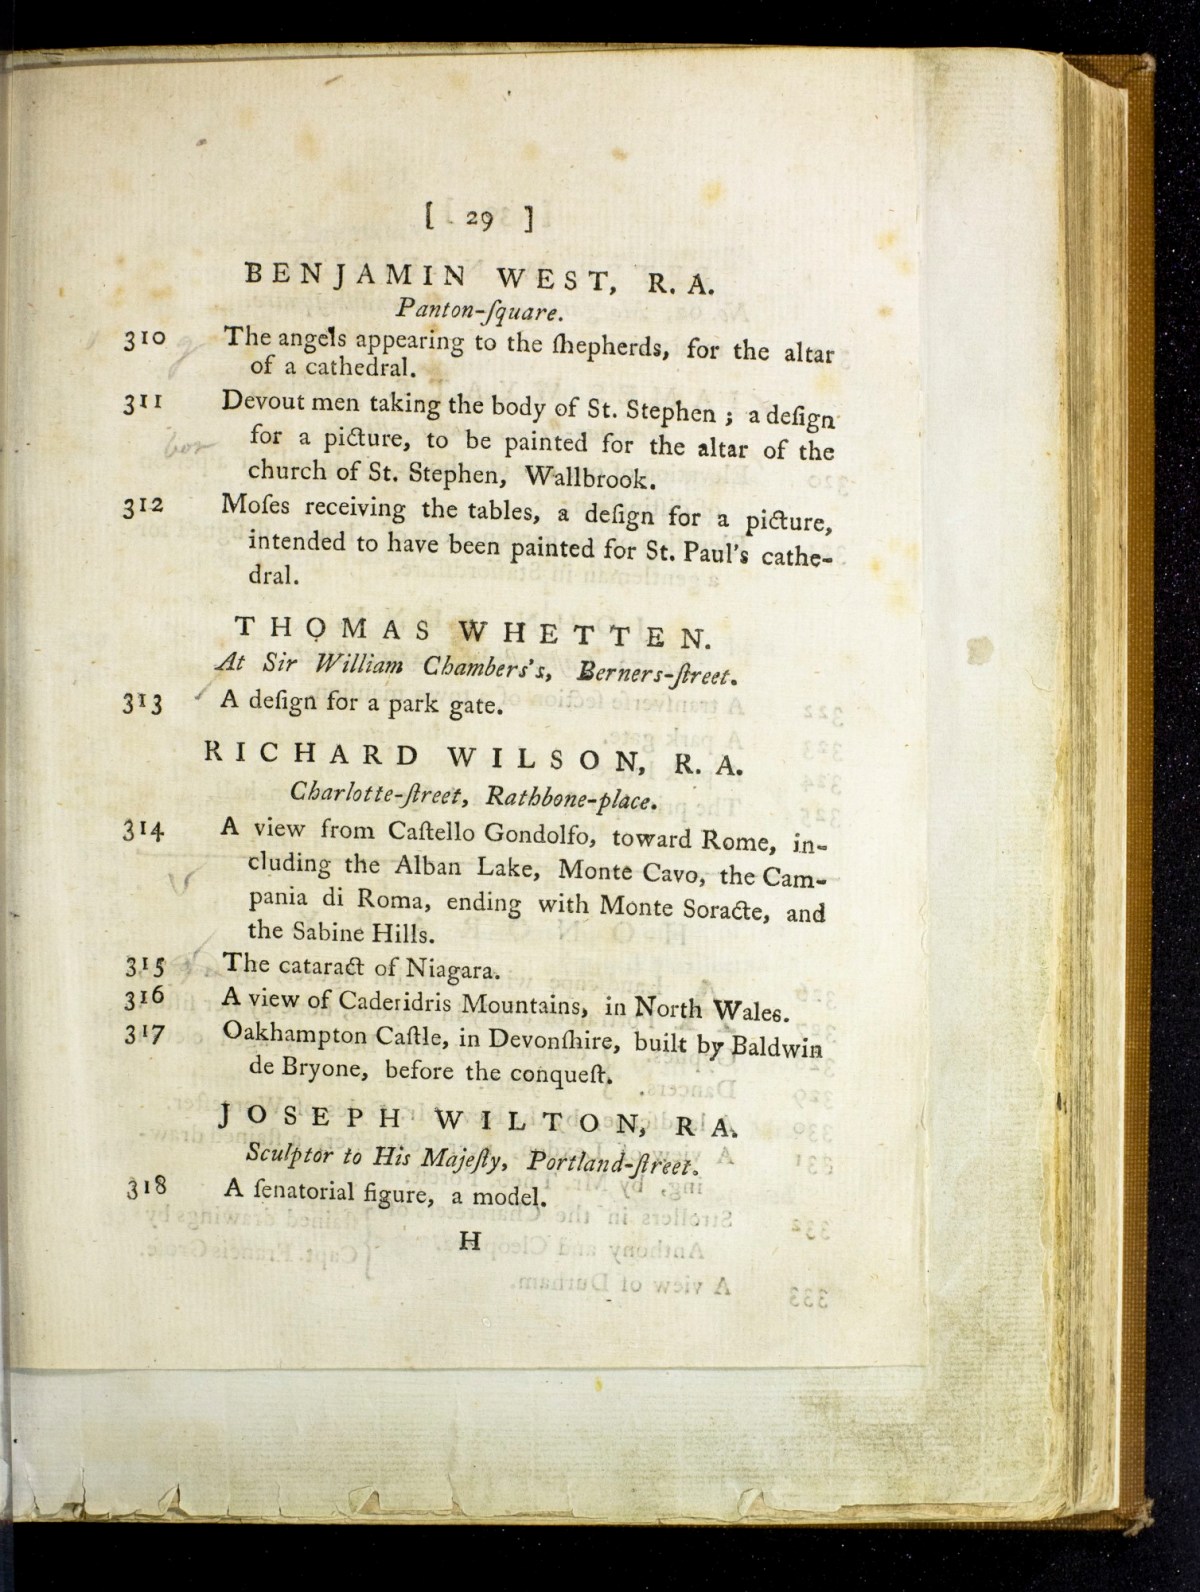 [ 29 ]
BENJAMIN WEST, R. A.
Panton-ſquare.
310 The angels appearing to the ſhepherds, for the altar
of a cathedral.
311 Devout men taking the body of St. Stephen ; a deſign
for a picture, to be painted for the altar of the
church of St. Stephen, Wallbrook.
312 Moſes receiving the tables, a deſign for a picture,
intended to have been painted for St. Paul's cathe-
dral.
THOMAS WHETTEN.
At Sir William Chambers's, Berners-ſtreet.
313 A deſign for a park gate.
RICHARD WILSON, R. A.
Charlotte-ſtreet, Rathbone-place.
314 A view from Caſtello Gondolfo, toward Rome, in-
cluding the Alban Lake, Monte Cavo, the Cam-
pania di Roma, ending with Monte Soracte, and
the Sabine Hills.
315 The cataract of Niagara.
316 A view of Caderidris Mountains, in North Wales.
317 Oakhampton Caſtle, in Devonſhire, built by Baldwin
de Bryone, before the conqueſt.
JOSEPH WILTON, R A.
Sculptor to His Majeſty, Portland-ſtreet.
318 A ſenatorial figure, a model.
H